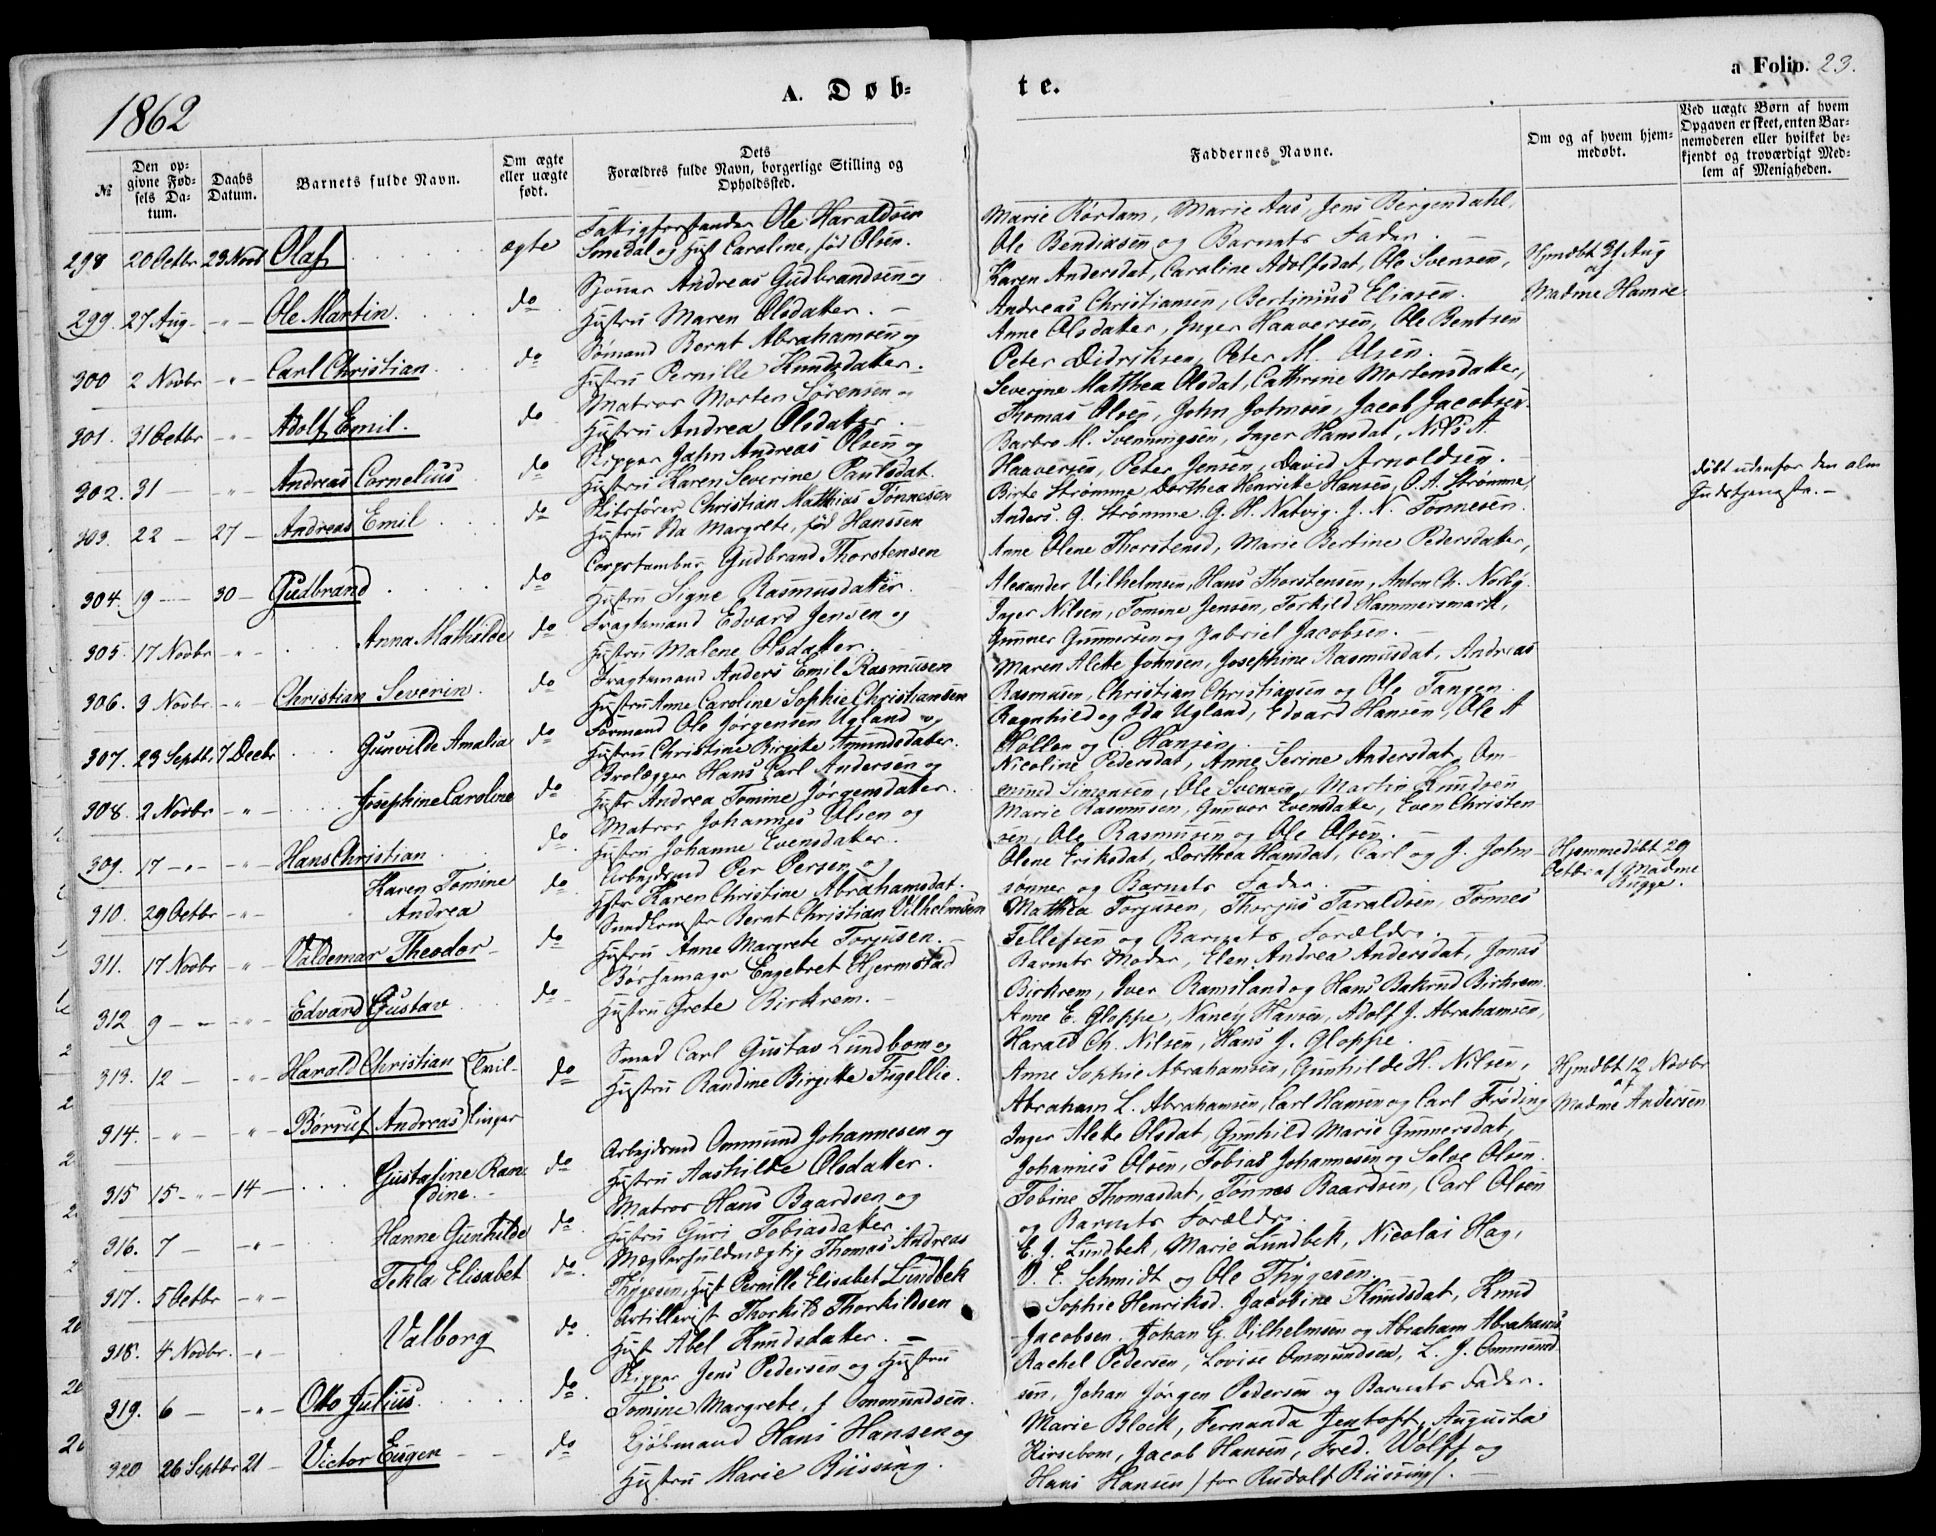 1862
A. Døb-
te.
a Folio. 23.
№
Den opgivne Fødsels Datum.
Daabs Datum.
Barnets fulde Navn.
Om ægte eller uægte født.
Dets Forældres fulde Navn, borgerlige Stilling og Opholdssted.
Faddernes Navne.
Om og af hvem hjemmedøbt.
Ved uægte Børn af hvem Opgaven er skeet, enten Barnemoderen eller hvilket bekjendt og troværdigt Medlem af Menigheden.
298 20 Octbr 23 Novb Olaf ægte Fattigforstander Ole Haraldsen
Smedal og Hust Caroline, fød Olsen.
Marie Rørdam, Marie Aas, Jens Bergendahl,
Ole Bendiksen og Barnets Fader.
299. 27 Aug. - " - Ole Martin. do Andreas Gudbrandsen og
Hustru Maren Olsdatter. -
Karen Andersdat, Caroline Adolfsdat, Ole Svensen,
Andreas Christiansen, Bertinius Eliasen.
Hjmdbt 31 Aug
af
Madme Hamre
300 2 Novbr - " - Carl Christian. do Sømand Bernt Abrahamsen og
Hustru Pernille Knudsdatter.
Anne Olsdatter, Inger Haaversen, Ole Bentsen
Peter Didriksen, Peter M. Olsen.
301. 31 Octbr - " - Adolf Emil. do Matros Morten Sørensen og
Hustru Andrea Olsdatter.
Severine Matthea Olsdat, Cathrine Mortensdatter,
Thomas Olsen, John Johnsen, Jacob Jacobsen.
302. 31 - - " - Andreas Cornelius do Skipper Jahn Andreas Olsen og
Hustru Karen Severine Paulsdat.
Barbro M. Svenningsen, Inger Hansdat, Nils A.
Haaversen, Peter Jensen, David Arnoldsen.
303. 22 - 27 - Andreas Emil do Skibsfører Christian Mathias Tønnesen
Hustru Ida Margrete, fød Hanssen
Birte Strømme, Dorthea Henriette Hansen, O. A. Strømme,
Anders. G. Strømme. G. H. Natvig. J. N. Tønnesen.
Døbt udenfor den alm
Gudstjeneste. -
304. 19 - 30 - Gudbrand do Corpstambur Gudbrand Thorstensen
Hustru Signe Rasmusdatter.
Anne Olene Thorstensd, Marie Bertine Pedersdatter,
Alexander Vilhelmsen, Hans Thorstensen, Anton Ch. Norby.
305. 17 Novbr - " - Anna Mathilde do Fragtemand Edvard Jensen og
Hustru Malene Olsdatter.
Inger Nilsen, Tomine Jensen, Torkild Hammersmark,
Gunner Gunnersen og Gabriel Jacobsen.
306. 3 Novbr. - " - Christian Severin. do Fragtemand Anders Emil Rasmusen
Hustru Anne Caroline Sophie Christiansen
Maren Alette Johnsen, Josephine Rasmusdat, Andreas
Rasmusen, Christian Christiansen og Ole Tangen
307. 23 Septbr 7 Decbr Gunvilde Amalia do Formand Ole Jørgensen Ugland og
Hustru Christine Birgitte Amundsdatter.
Ragnhild og Ida Ugland, Edvard Hansen, Ole A
Høllen og C. Hansen
308. 2 Novbr - " - Josephine Caroline do Brolægger Hans Carl Andersen og
Hustr Andrea Tomine Jørgensdatter.
Nicoline Pedersdat, Anne Serine Andersdat, Om-
mund Simonsen, Ole Svensen, Martin Knudsen
309. 17 - " - - " - Hans Christian do. Matros Johannes Olsen og
Hustru Johanne Evensdatter.
Marie Rasmusen, Gunvor Evensdatter, Even Christen
sen, Ole Rasmusen og Ole Olsen.
310. 29 Octbr - " - Karen Tomine
Andrea do Arbejdsmd Per Persen og
Hstr Karen Christine Abrahamsdat.
Olene Eriksdat, Dorthea Hansdat, Carl og J. John-
sønner og Barnets Fader.
Hjemmedøbt 29
Octbr af Madme
Bugge.
311. 17 Novbr - " - Valdemar Theodor do Bernt Christian Vilhelmsen
Hustru Anne Margrete Torjusen.
Mathea Torjusen, Thorjus Taraldsen, Tønnes
Tellefsen og Barnets Forældre.
312 9 - " - - " - Edvard Gustav do Børsemager Engebret Hjermstad
Hustru Grete Birkrem. -
Barnets Moder, Elen Andrea Andersdat, Jonas
Birkrem, Iver Ramsland og Hans Bakrud Birkrem.
313. 12 - - " - Harald Christian } Tvil-
do Smed Carl Gustav Lundbom og
Hustru Randine Birgitte Fugellie.
Anne E. Gloppe, Nancy Hansen, Adolf J. Abrahamsen,
Harald Ch. Nilsen, Hans J. Gloppe.
314. - " - - " - Børruf Andreas } linger
Anne Sophie Abrahamsen, Gunhilde H. Nilsen,
Abraham L. Abrahamsen, Carl Hansen og Carl Frøding
Hjmdbt 12 Novbr
af
Madme Andersen
315 15 - " - 14 - Gustafine Ran-
dine. do Arbejdsmd Ommund Johannesen og
Hustru Aashilde Olsdatter.
Inger Alette Olsdat, Gunhild Marie Gunnersdat,
Johannes Olsen, Tobias Johannesen og Salve Olsen.
316. 7 - - " - Hanne Gunhilde do. Matros Hans Baardsen og
Hustru Guri Tobiasdatter
Tobine Thomasdat, Tønnes Baardsen, Carl Olsen
og Barnets Forældre.
317. 5 Octbr - " - Tekla Elisabet do. Mæglerfuldmægtig Thomas Andreas
Thygesen, Hust Pernille Elisabet Lundbek
E. J. Lundbek, Marie Lundbek, Nicolai Hag,
V. E. Schmidt og Ole Thygesen.
318. 4 Novbr. - " - Valborg do. Artillerist Thorkild Thorkildsen
Hust Abel Knudsdatter. -
Sophie Henriksd. Jacobine Knudsdat, Knud
Jacobsen. Johan G. Vilhelmsen og Abraham Abrahams
319. 6 - - " - Otto Julius. do. Skipper Jens Pedersen og Hustru
Tomine Margrete, f Ommundsen.
Rachel Pedersen, Lovise Ommundsen, L. J. Ommund
sen, Johan Jørgen Pedersen og Barnets Fader.
320 26 Septbr 21 - Victor Eugen do Hans Hansen og
Hustru Marie Büssing.
Marie Block, Fernanda Jentoft, Augusta
Kirsebom, Jacob Hansen, Fred. Wolff og
Hans Hansen /for Rudolf Büssing/. -